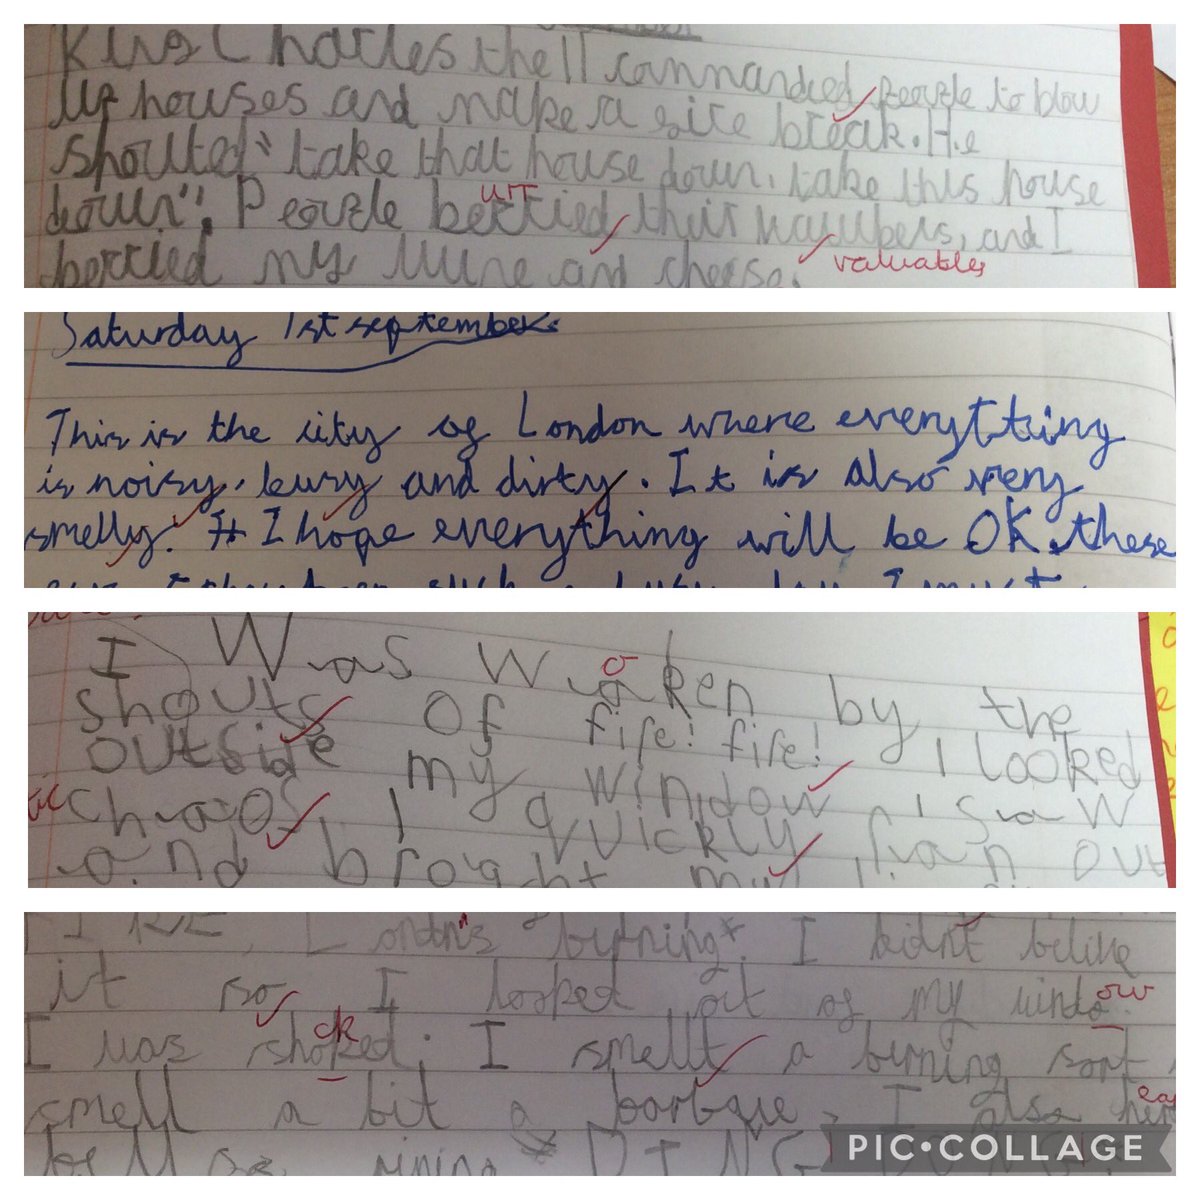 King Charles the II commanded people to blow
up houses and make a fire break. He
shouted "take that house down, take this house
down". People berried their valubers, and I
ur
berried my wine and cheese.
valuables
Saturday 1st september.
This is the city of London where everything
is noisy, busy and dirty. It is also very
smelly. It I hope everything will be OK these
I was waken by the
o
shouts of fire! fire! I looked
outside my window I saw
chaos, I quickly ran out
and broaght my
FIRE, Londn's burning. I didn't belive
it so I looked out of my windo
ow
I was shoked. I smellt a burning sort
ck
smell a bit a barbque. I also her
ea
PIC•COLLAGE